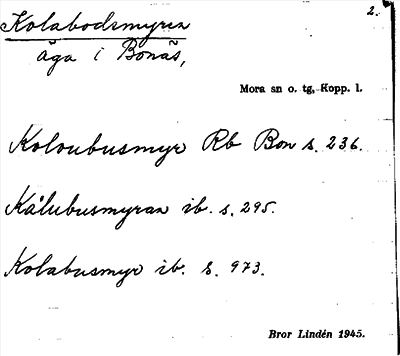 2.
Kolabodsmyren
äga i Bonäs,
Mora sn o. tg, Kopp. l.
Koloubusmyr Rb Bon s. 236.
Kålubusmyran ib. s. 295.
Kolabusmyr ib. s. 973.
Bror Lindén 1945.